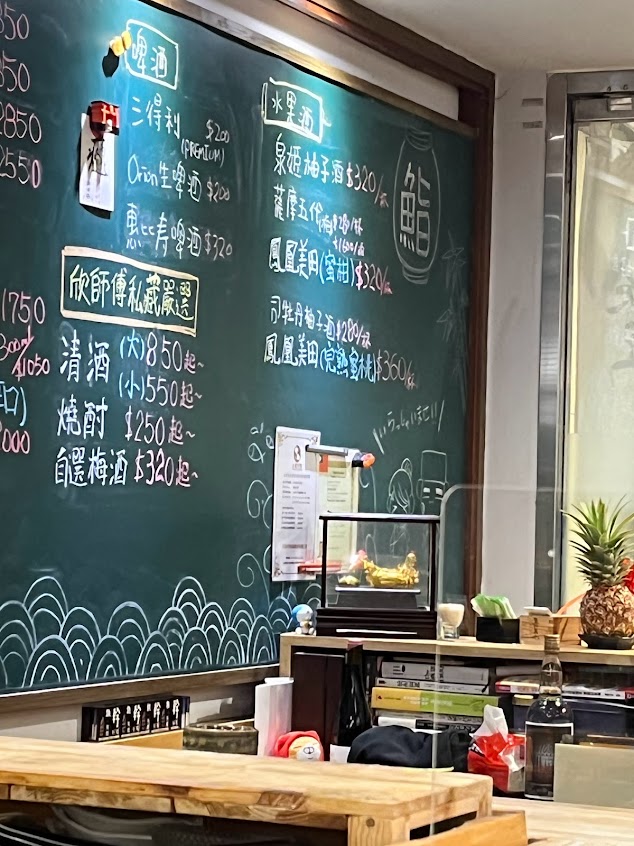 850
850
2850
2550
1750
1050
啤酒
三得利 $200
(PREMIUM)
Orion生啤酒 $200
惠比寿啤酒 $320
欣師傅私藏嚴選
清酒 (大)850起~
(小)550起~
燒酎 $250起~
自選梅酒 $320起~
水果酒
泉姬柚子酒$320/杯
薩摩五代梅 $280/杯
$1600/瓶
鳳凰美田(蜜柑)$320/杯
司牡丹柚子酒$280/杯
鳳凰美田(完熟蜜桃)$360/杯
鮨
いらっしゃいませ!!